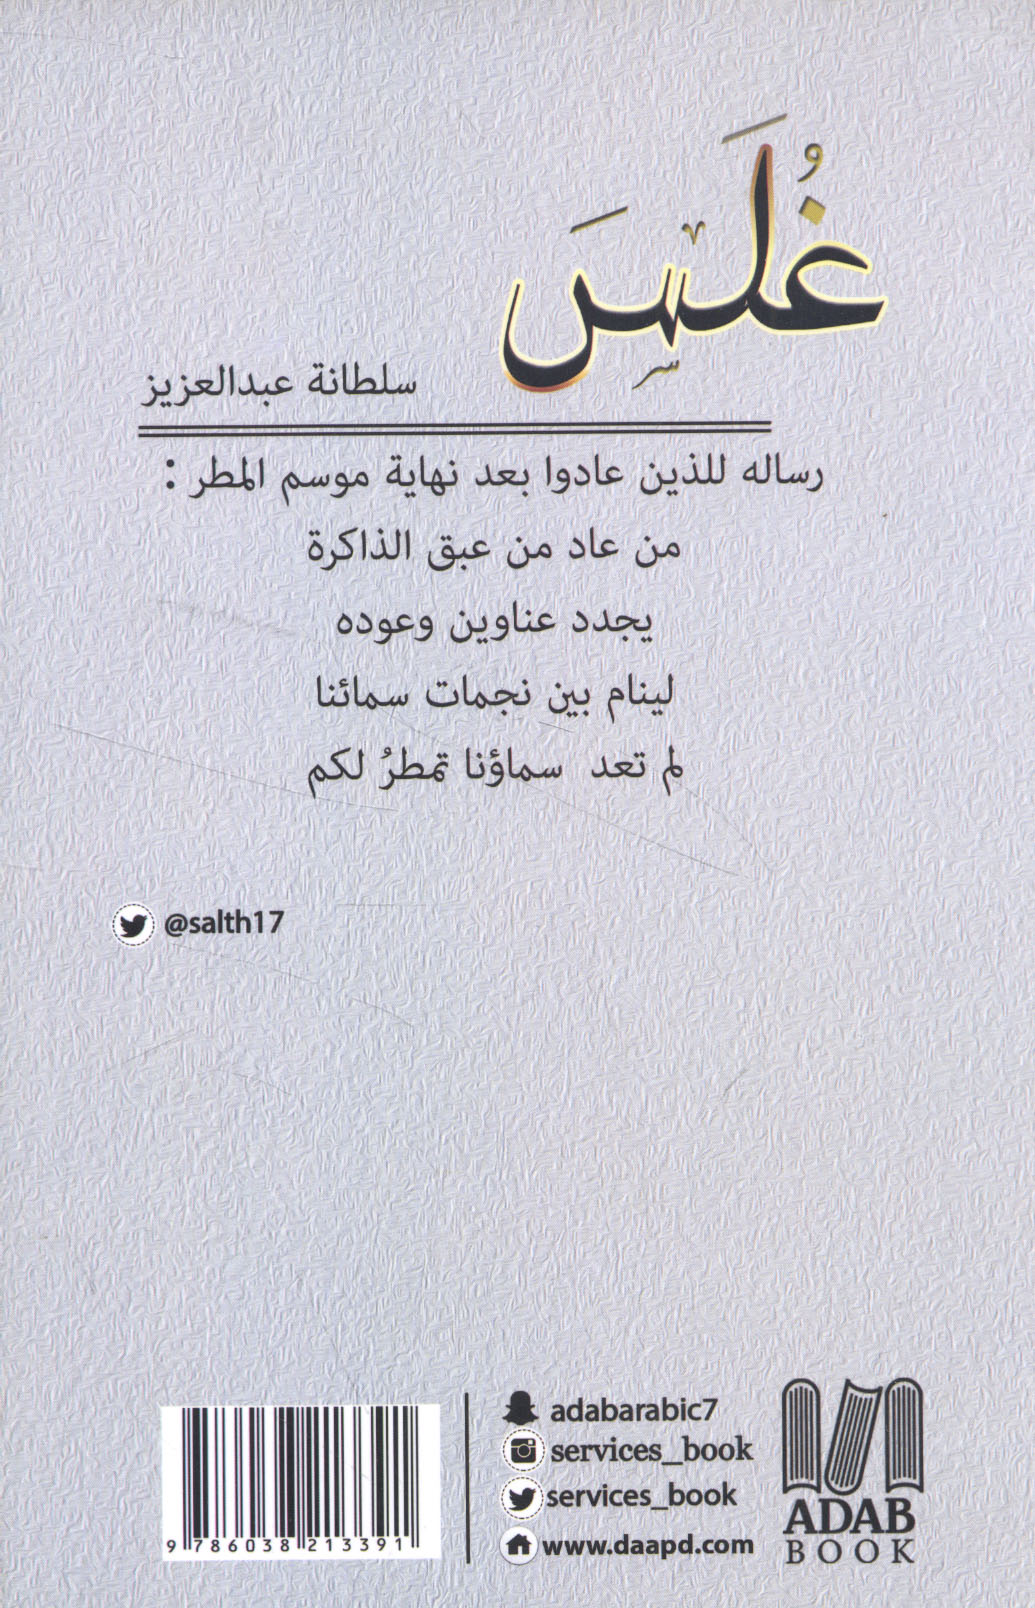 غُلَسَ
سلطانة عبدالعزيز
رساله للذين عادوا بعد نهاية موسم المطر :
من عاد من عبق الذاكرة
يجدد عناوين وعوده
لينام بين نجمات سمائنا
لم تعد سماؤنا تمطرُ لكم
@salth17
adabarabic7
services_book
services_book
www.daapd.com
ADAB
BOOK
9 786038 213391